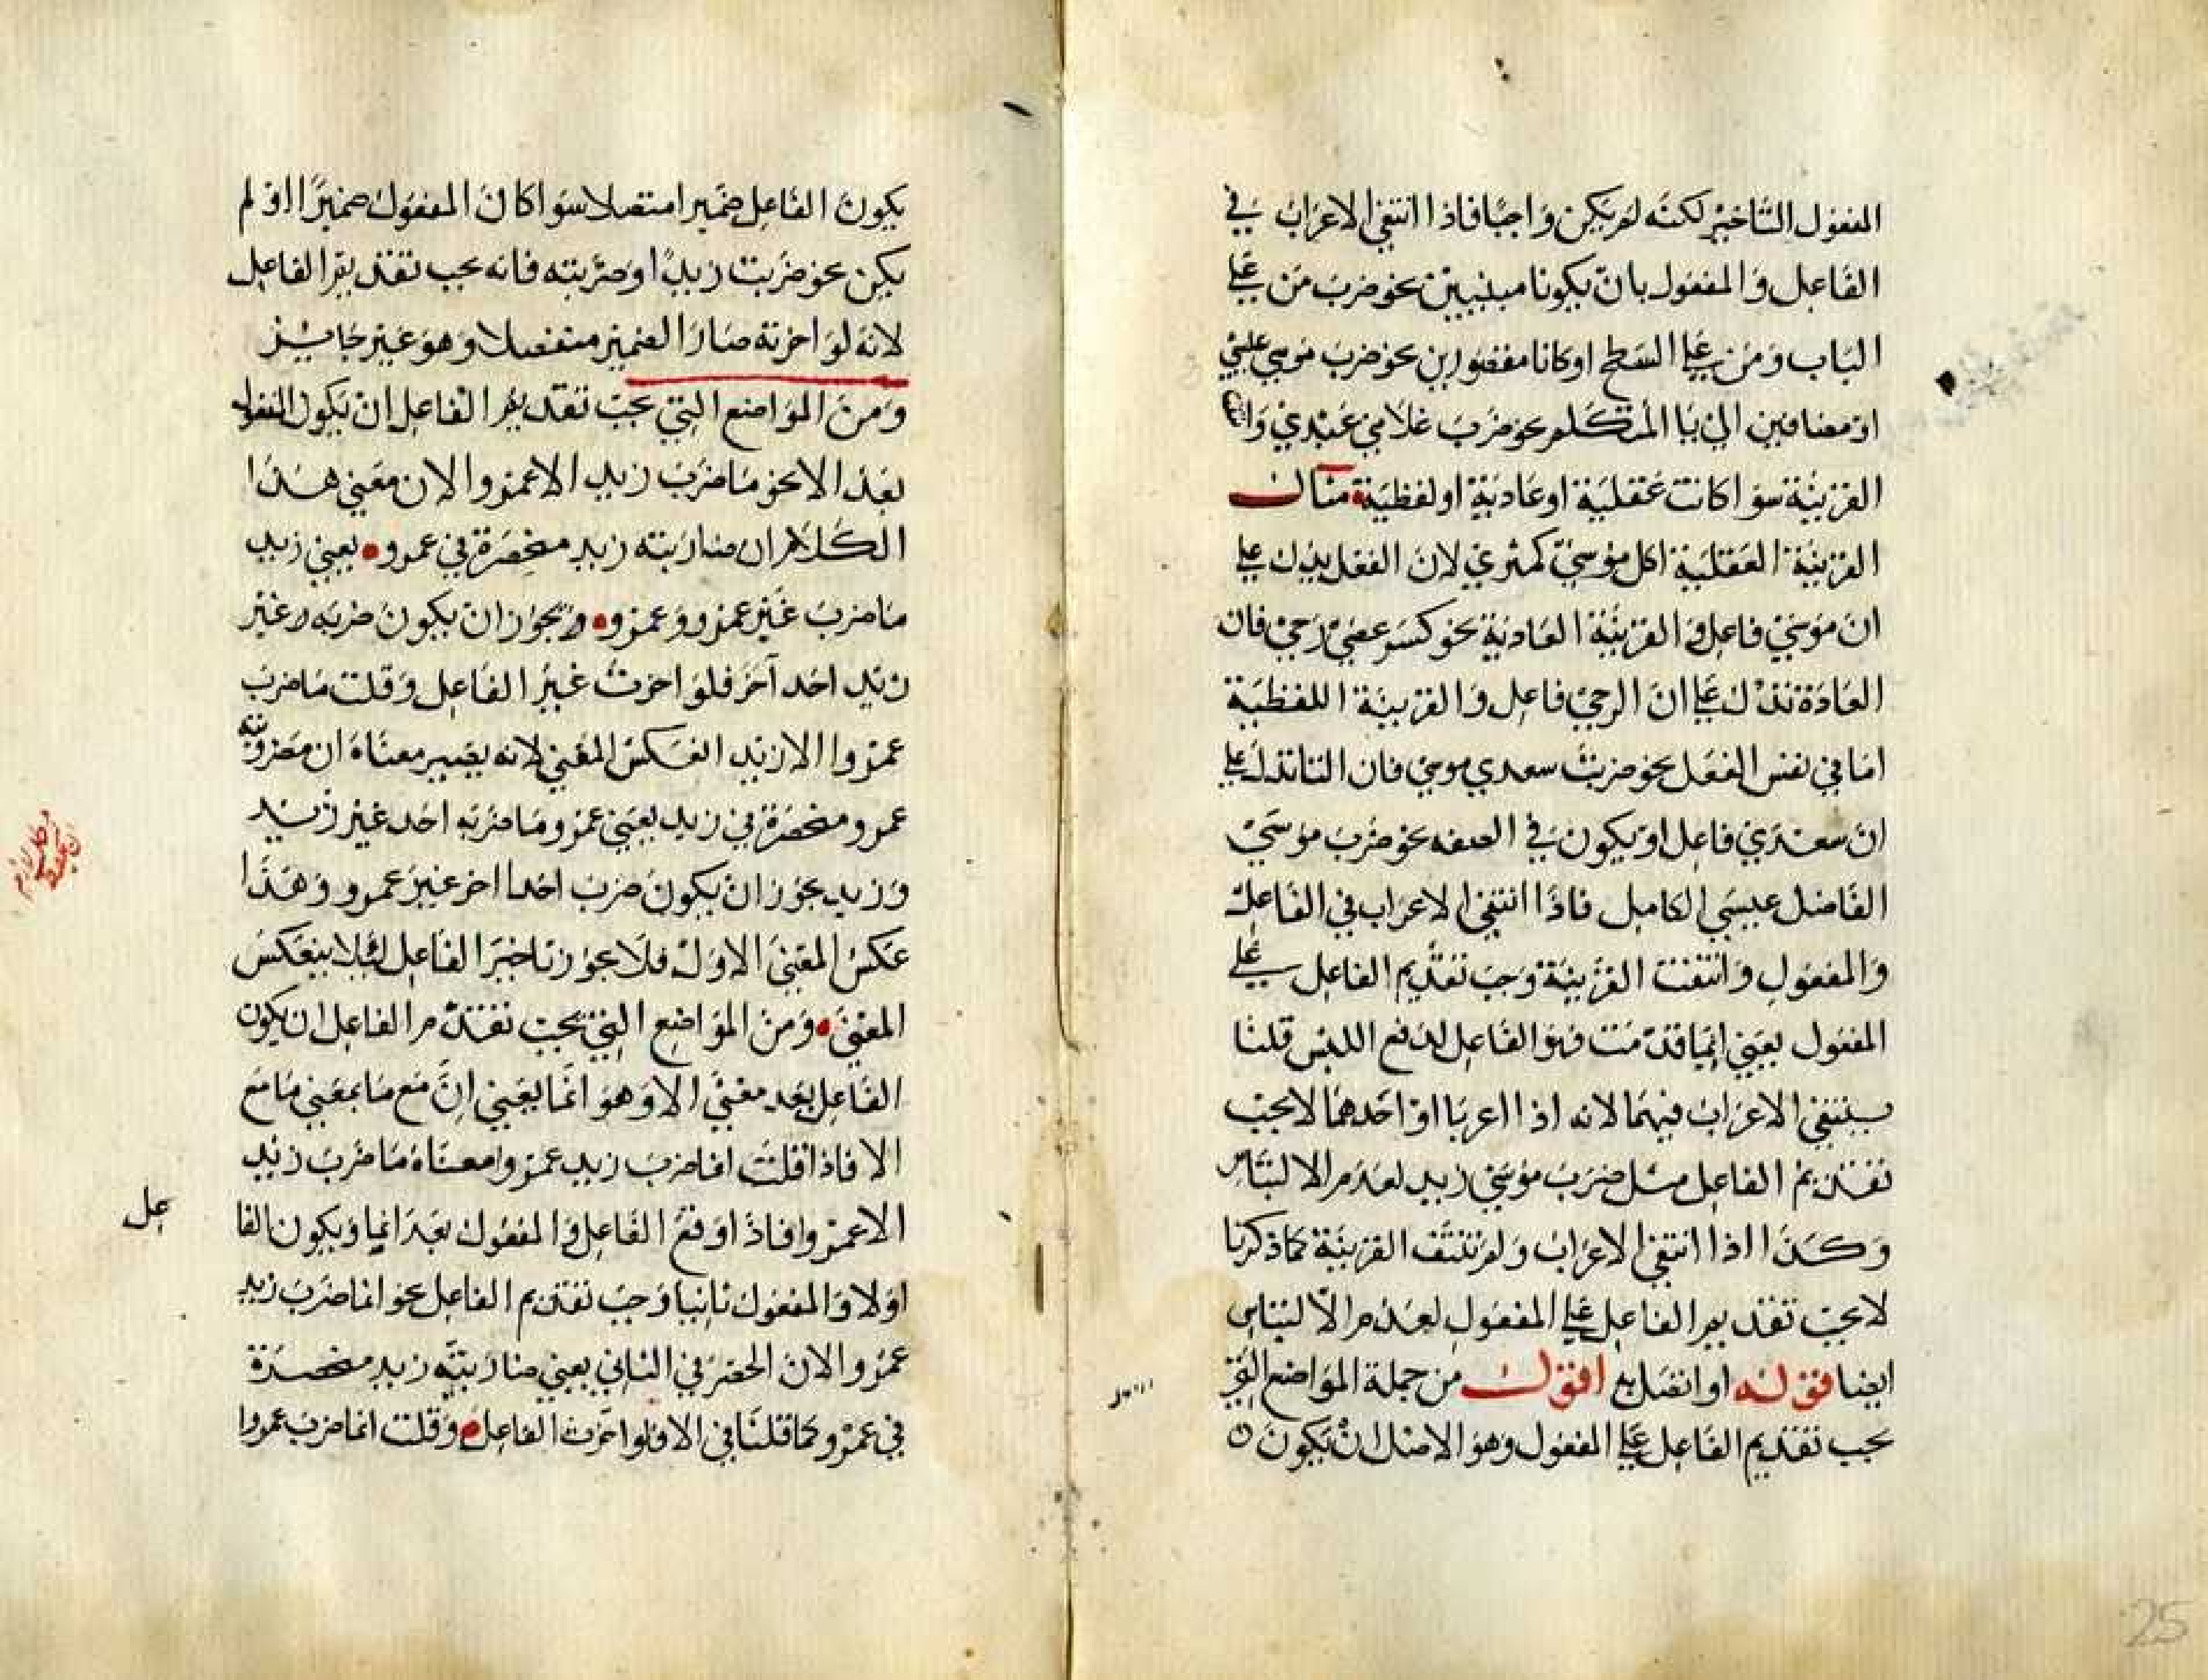 المفعول التاخير لكنه لم يكن واجبا فاذا انتفى الاعراب في
الفاعل والمفعول بان يكونا مبنيين نحو ضرب من على
الباب ومن على السطح او كانا مقصورين نحو ضرب موسى عيسى
او مضافين الى يا المتكلم نحو ضرب غلامي عبدي و
القرينة سوا كانت عقلية او عادية او لفظية مثال
القرينة العقلية اكل موسى كمثرى لان الفعل يدل على
ان موسى فاعل والقرينة العادية نحو كسر عصى رحى فان
العادة تدل على ان الرحى فاعل والقرينة اللفظية
اما في نفس الفعل نحو ضربت سعدي موسى فان التا تدل على
ان سعدي فاعل او يكون في الصفه نحو ضرب موسى
الفاضل عيسى الكامل فاذا انتفى الاعراب في الفاعل
والمفعول وانتفت القرينة وجب تقديم الفاعل على
المفعول يعني انما قدمت فهو الفاعل لدفع اللبس قلنا
ينتفي الاعراب فيهما لانه اذا اعربا او احدهما لا يجب
تقديم الفاعل مثل ضرب موسى زيد لعدم الالتباس
وكذا اذا انتفى الاعراب ولم تنتف القرينة كما ذكرنا
لا يجب تقديم الفاعل على المفعول لعدم الالتباس
ايضا قوله او اتصل به اقول من جملة المواضع التي
يجب تقديم الفاعل على المفعول وهو الاصل ان يكون
يكون الفاعل ضميرا متصلا سوا كان المفعول ضميرا او لم
يكن نحو ضربت زيدا وضربته فانه يجب تقديم الفاعل
لانه لو اخرته صار الضمير منفصلا وهو غير جايز
ومن المواضع التي يجب تقديم الفاعل ان يكون المفعول
بعد الا نحو ما ضرب زيد الا عمروا لان معنى هذا
الكلام ان ضاربته زيد منحصرة في عمرو يعني زيد
ما ضرب غير عمرو وعمرو يجوز ان يكون ضربه غير
زيد احد آخر فلو اخرت غير الفاعل وقلت ما ضرب
عمروا الا زيد انعكس المعنى لانه يصير معناه ان مضروبية
عمرو منحصرة في زيد يعني عمرو ما ضربه احد غير زيد
وزيد يجوز ان يكون ضرب احدا اخر غير عمرو وهذا
عكس المعنى الاول فلا يجوز تاخير الفاعل لئلا ينعكس
المعنى ومن المواضع التي يجب تقديم الفاعل ان يكون
الفاعل بعد معنى الا وهو انما يعني ان مع ما بمعنى ما مع
الا فاذا قلت انما ضرب زيد عمروا معناه ما ضرب زيد
الا عمروا فاذا وقع الفاعل والمفعول بعد انما ويكون الفا
عل
اولا والمفعول ثانيا وجب تقديم الفاعل نحو انما ضرب زيد
عمروا لان الحصر في الثاني يعني ضاربية زيد منحصرة
في عمرو كما قلنا في الا فلو اخرت الفاعل وقلت انما ضرب عمروا
25